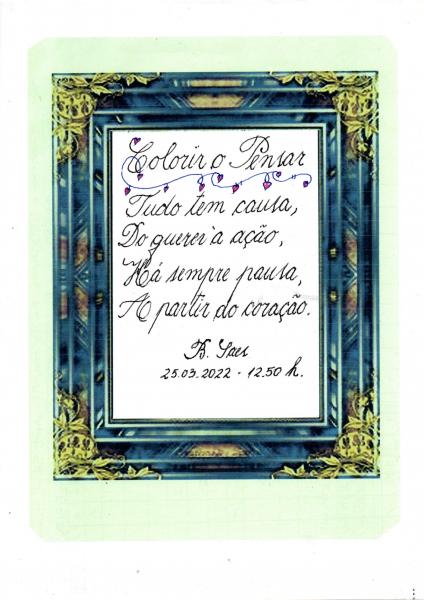 Colorir o Pensar
Tudo tem causa,
Do querer à ação,
Há sempre pausa,
A partir do coração.
B. Saes
25.03.2022 - 12.50 h.